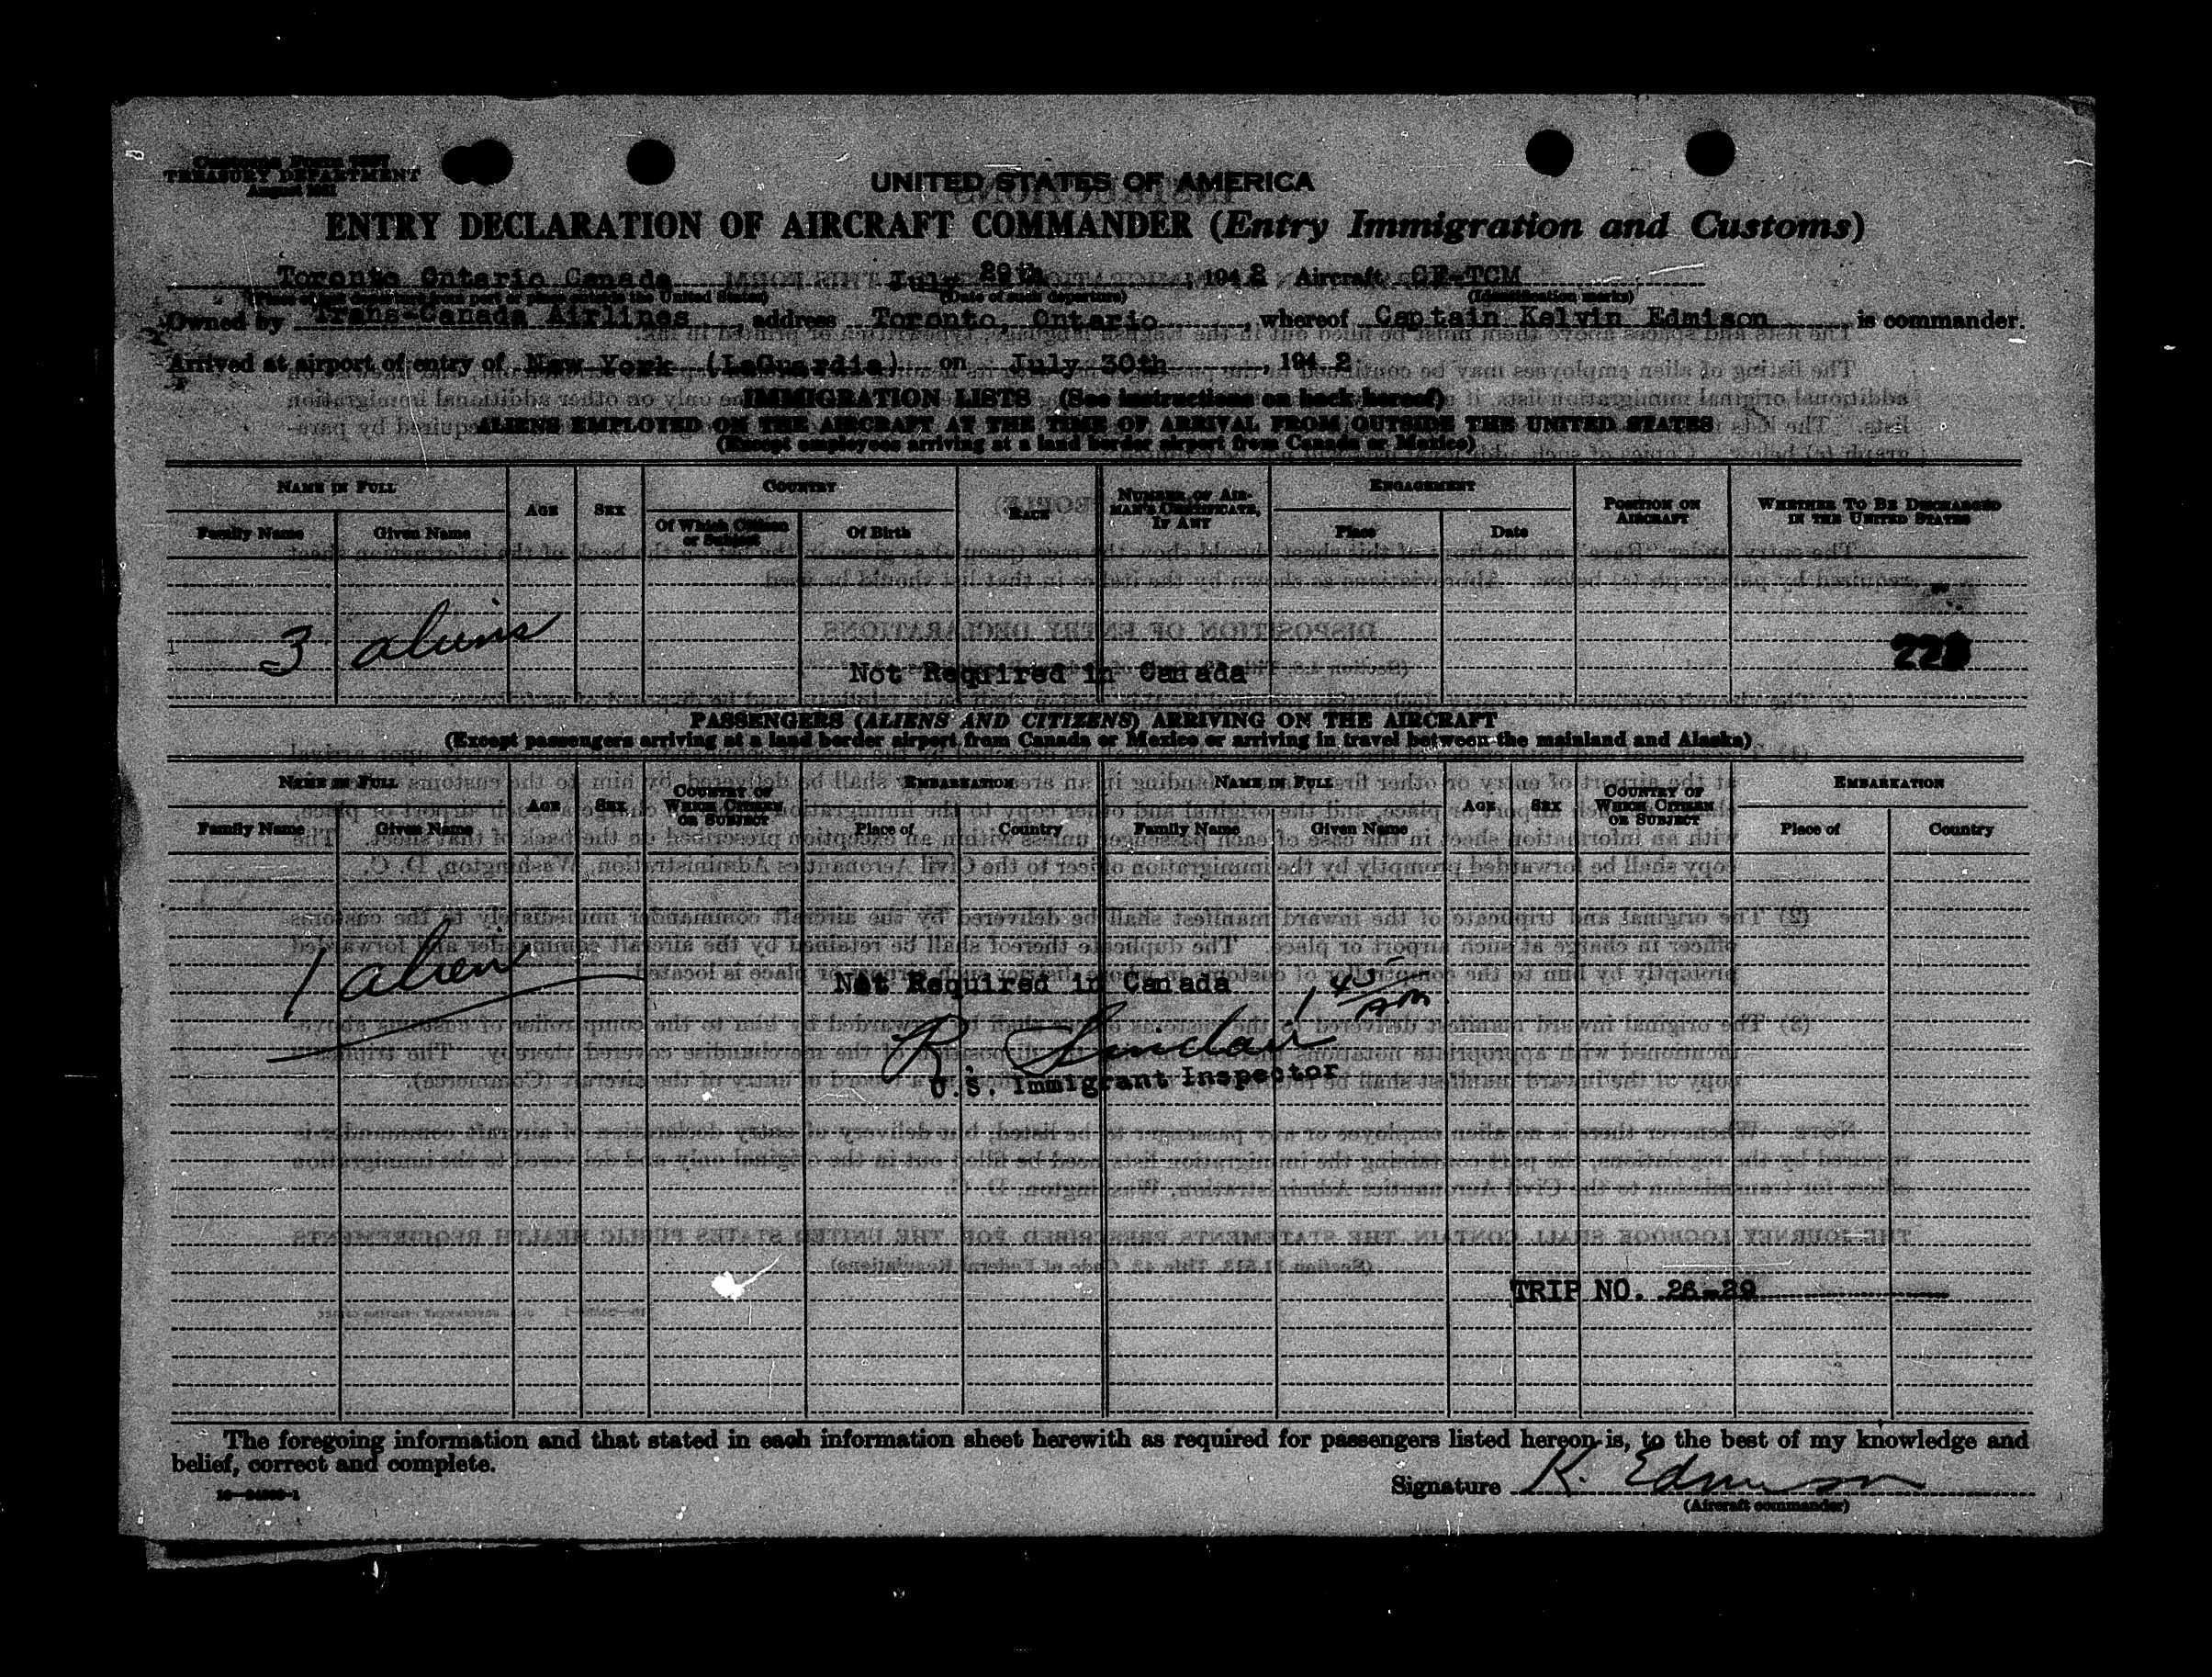 TREASURY DEPARTMENT
UNITED STATES OF AMERICA
ENTRY DECLARATION OF AIRCRAFT COMMANDER (Entry Immigration and Customs)
Toronto Ontario Canada July 29th, 1942 Aircraft CF-TCM
(Date of such departure) (Identification marks)
Owned by Trans-Canada Airlines, address Toronto, Ontario, whereof Captain Kelvin Edmison is commander.
Arrived at airport of entry of New York (LaGuardia) on July 30th, 1942
IMMIGRATION LISTS (See instructions on back hereof)
ALIENS EMPLOYED ON THE AIRCRAFT AT THE TIME OF ARRIVAL FROM OUTSIDE THE UNITED STATES
(Except employees arriving at a land border airport from Canada or Mexico)
NAME IN FULL AGE SEX COUNTRY RACE NUMBER OF AIRMAN'S CERTIFICATE, IF ANY ENGAGEMENT POSITION ON AIRCRAFT WHETHER TO BE DISCHARGED IN THE UNITED STATES
Family Name Given Name Of Which Citizen or Subject Of Birth Place Date
3 aliens
Not Required in Canada
PASSENGERS (ALIENS AND CITIZENS) ARRIVING ON THE AIRCRAFT
(Except passengers arriving at a land border airport from Canada or Mexico or arriving in travel between the mainland and Alaska)
NAME IN FULL AGE SEX COUNTRY OF WHICH CITIZEN OR SUBJECT EMBARKATION NAME IN FULL AGE SEX COUNTRY OF WHICH CITIZEN OR SUBJECT EMBARKATION
Family Name Given Name Place of Country Family Name Given Name Place of Country
1 alien
Not Required in Canada
R. Sinclair
U.S. Immigrant Inspector
TRIP NO. 26-29
The foregoing information and that stated in each information sheet herewith as required for passengers listed hereon is, to the best of my knowledge and
belief, correct and complete.
Signature K. Edmison
(Aircraft commander)